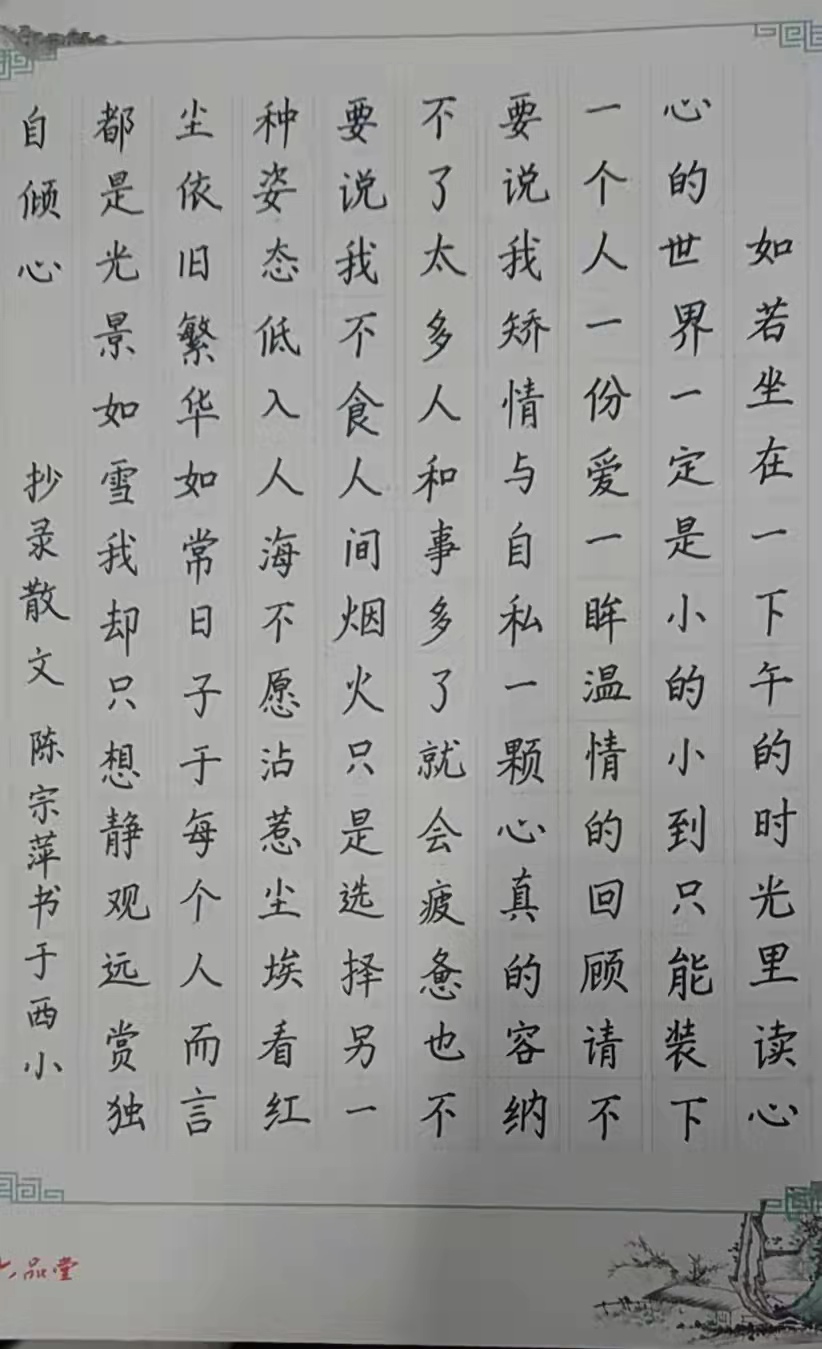 如若坐在一下午的时光里读心
心的世界一定是小的小到只能装下
一个人一份爱一眸温情的回顾请不
要说我矫情与自私一颗心真的容纳
不了太多人和事多了就会疲惫也不
要说我不食人间烟火只是选择另一
种姿态低入人海不愿沾惹尘埃看红
尘依旧繁华如常日子于每个人而言
都是光景如雪我却只想静观远赏独
自倾心
抄录散文 陈宗萍书于西小
品堂